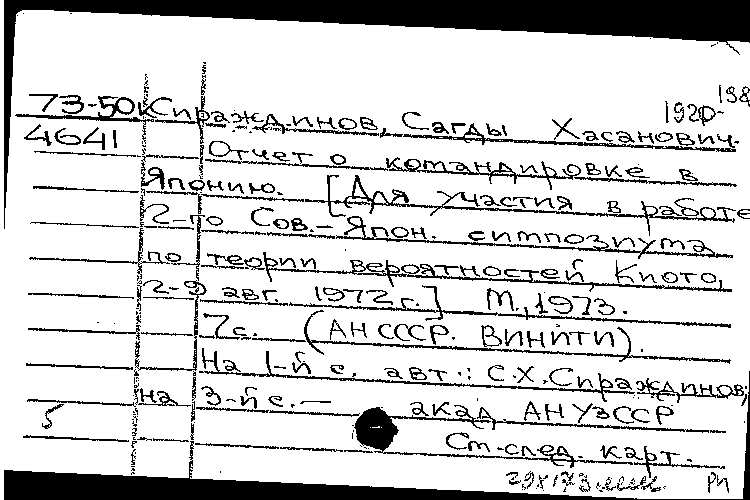 1920-198
73-50к Сиражддинов, Сагды Хасанович.
4641 Отчет о командировке в
Японию. [Для участия в работе
2-го Сов.-Япон. симпозиума
по теории вероятностей, Киото,
2-9 авг. 1972 г.] М., 1973.
7 с. (АН СССР. ВИНИТИ).
На 1-й с. авт.: С.Х.Сираждинов;
на 3-й с. — акад. АН УзССР
5 См. след. карт.
29х173 мм. РП